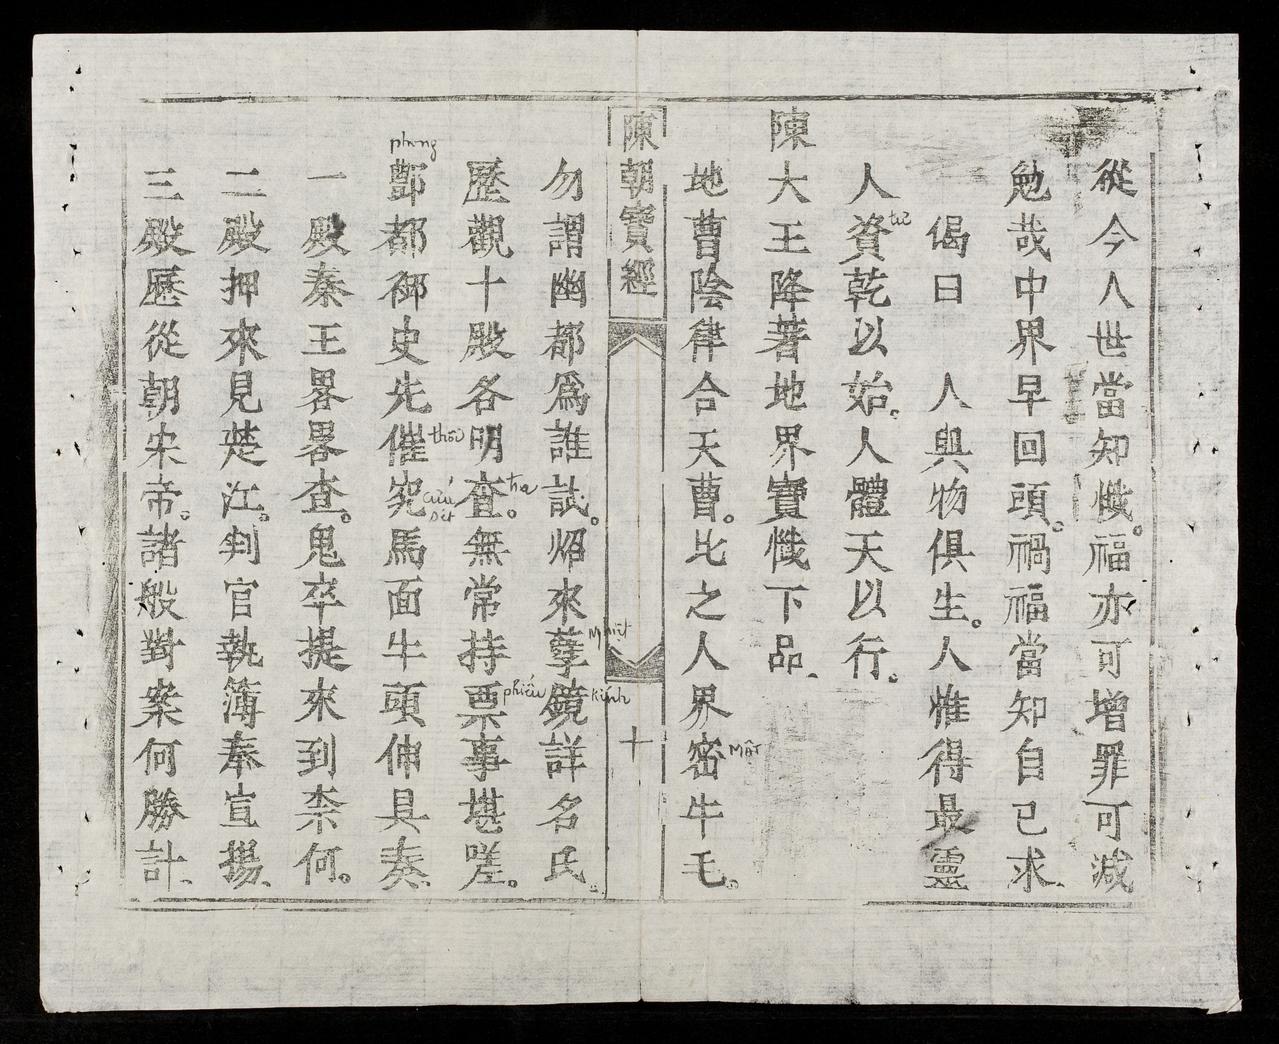 從今人世當知懺。福亦可增罪可減
勉哉中界早回頭。禍福當知自己求、
偈曰 人與物俱生。人惟得最靈
人資乾以始。人體天以行。
tư
陳大王降著地界寶懺下品、
地曹陰律合天曹。比之人界密牛毛。
Mật
陳朝寶經 十
勿謂幽都爲誰試。炤來孽鏡詳名氏。
Nghiệt
kiính
歷觀十殿各明查。無常持票事堪嗟。
tra
phiếu
酆都御史先催究馬面牛頭伸具奏、
phong
thôi
cứu
一殿秦王畧畧查。鬼卒提來到柰何。
二殿押來見楚江。判官執簿奉宣揚、
三殿歷從朝宋帝。諸般對案何勝計、